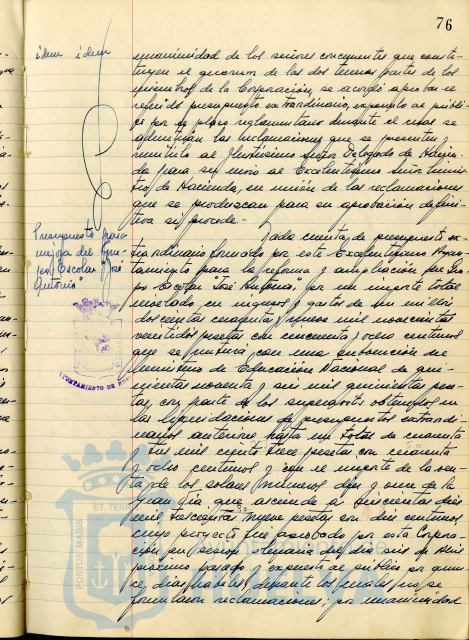 76
idem idem
unanimidad de los señores concurrentes que consti-
tuyen el quorum de las dos terceras partes de los
miembros de la Corporación, se acordó aprobar el
referido presupuesto extraordinario, exponerlo al públi-
co por el plazo reglamentario durante el cual se
admitirán las reclamaciones que se presenten y
remitirlo al Ilustrísimo Señor Delegado de Hacien-
da para su envío al Excelentísimo Señor Minis-
tro de Hacienda, en unión de las reclamaciones
que se produzcan para su aprobación defini-
tiva si procede.-
Presupuesto para
mejora del Gru-
po Escolar "José
Antonio"
Dada cuenta del presupuesto ex-
traordinario formado por este Excelentísimo Ayun-
tamiento para la reforma y ampliación del Gru-
po Escolar "José Antonio", por un importe total
nivelado en ingresos y gastos de un millón
doscientas cuarenta y nueve mil novecientas
veintidos pesetas con cincuenta y ocho centimos
que se nutrirá con una subvención del
Ministerio de Educación Nacional de qui-
nientas noventa y seis mil quinientas pese-
tas, con parte de los superavits obtenidos en
las liquidaciones de presupuestos extraordi-
narios anteriores hasta un total de cuarenta
y tres mil ciento trece pesetas con cuarenta
y ocho centimos y con el importe de la ven-
ta de los solares números diez y once de la
Gran Vía que asciende a seiscientas diez
mil trescientas nueve pesetas con diez centimos,
cuyo proyecto fue aprobado por esta Corpora-
ción en sesión ordinaria del dia seis de
próximo pasado y expuesto al público por quin-
ce dias habiles, durante los cuales no se
formularon reclamaciones; por unanimidad
AYUNTAMIENTO DE
PORTUS MARIS
ET TERR
HUELVA